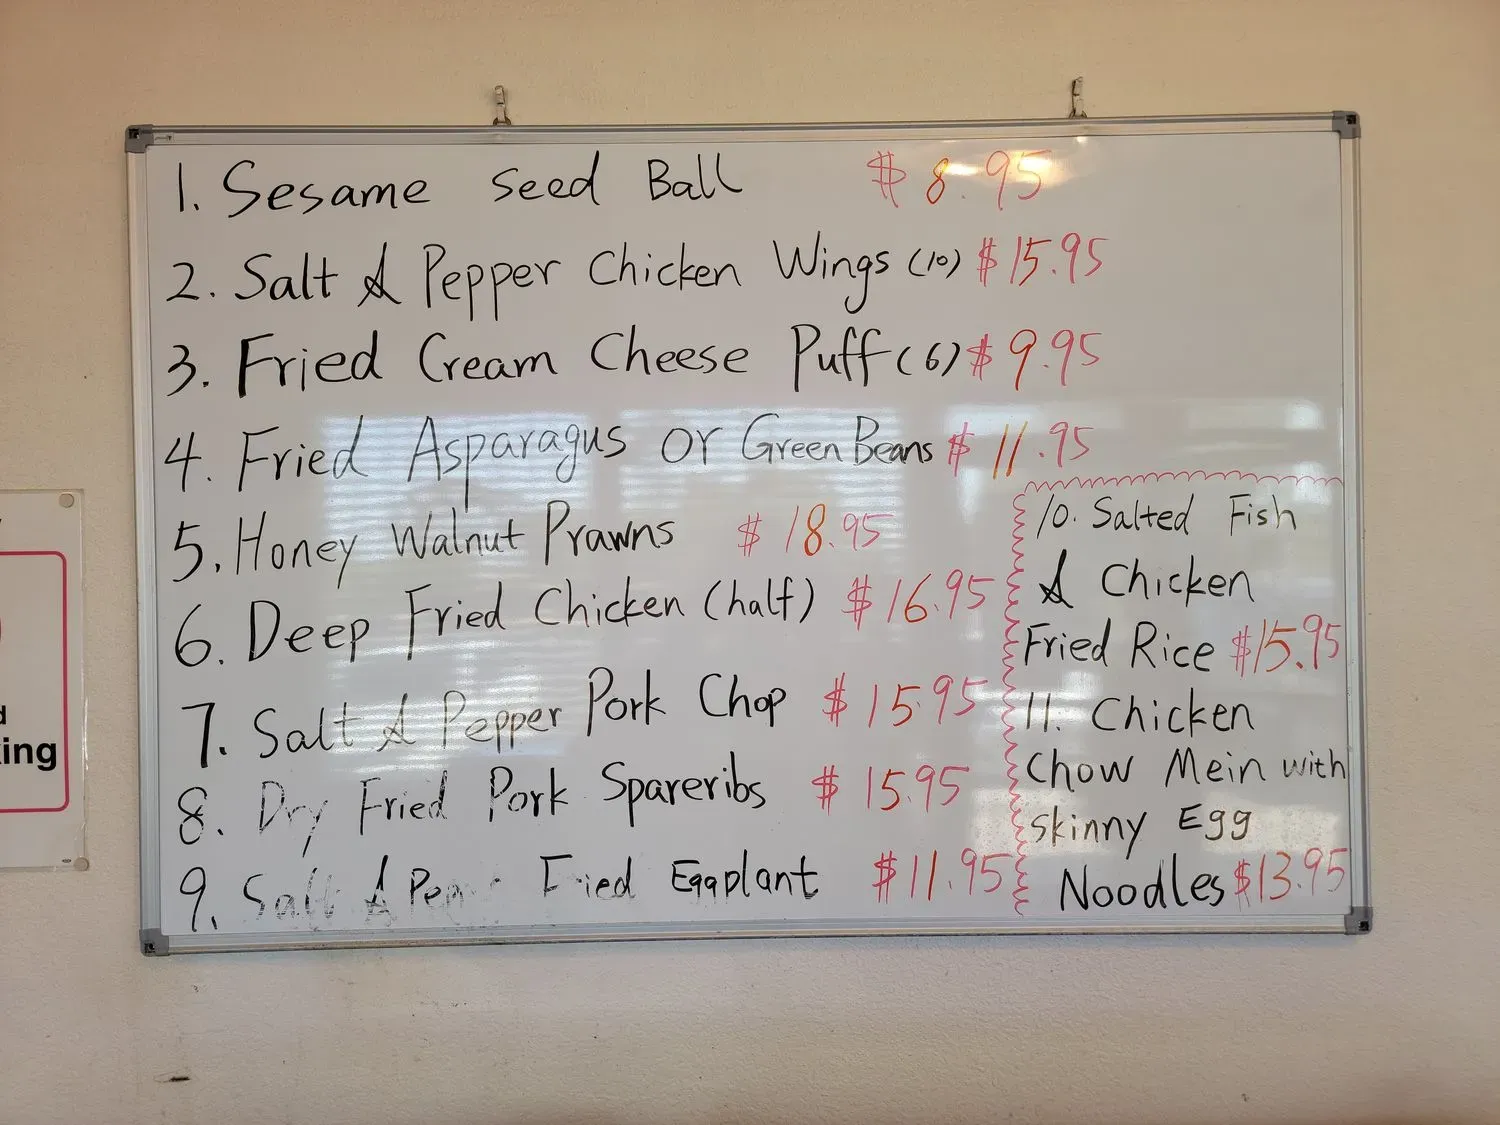 1. Sesame Seed Ball $8.95
2. Salt & Pepper Chicken Wings (10) $15.95
3. Fried Cream Cheese Puff (6) $9.95
4. Fried Asparagus or Green Beans $11.95
5. Honey Walnut Prawns $18.95
6. Deep Fried Chicken (half) $16.95
7. Salt & Pepper Pork Chop $15.95
8. Dry Fried Pork Spareribs $15.95
9. Salt & Fried Eggplant $11.95
10. Salted Fish
& Chicken
Fried Rice $15.95
11. Chicken
Chow Mein with
Skinny Egg
Noodles $13.95